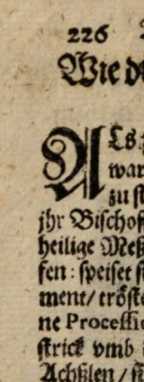 226
Wie de
ALs
war
zu st
jhr Bischof
heilige Meß
sen: speiset s
ment/ tröste
ne Processi
strick vmb
Achßlen/ st